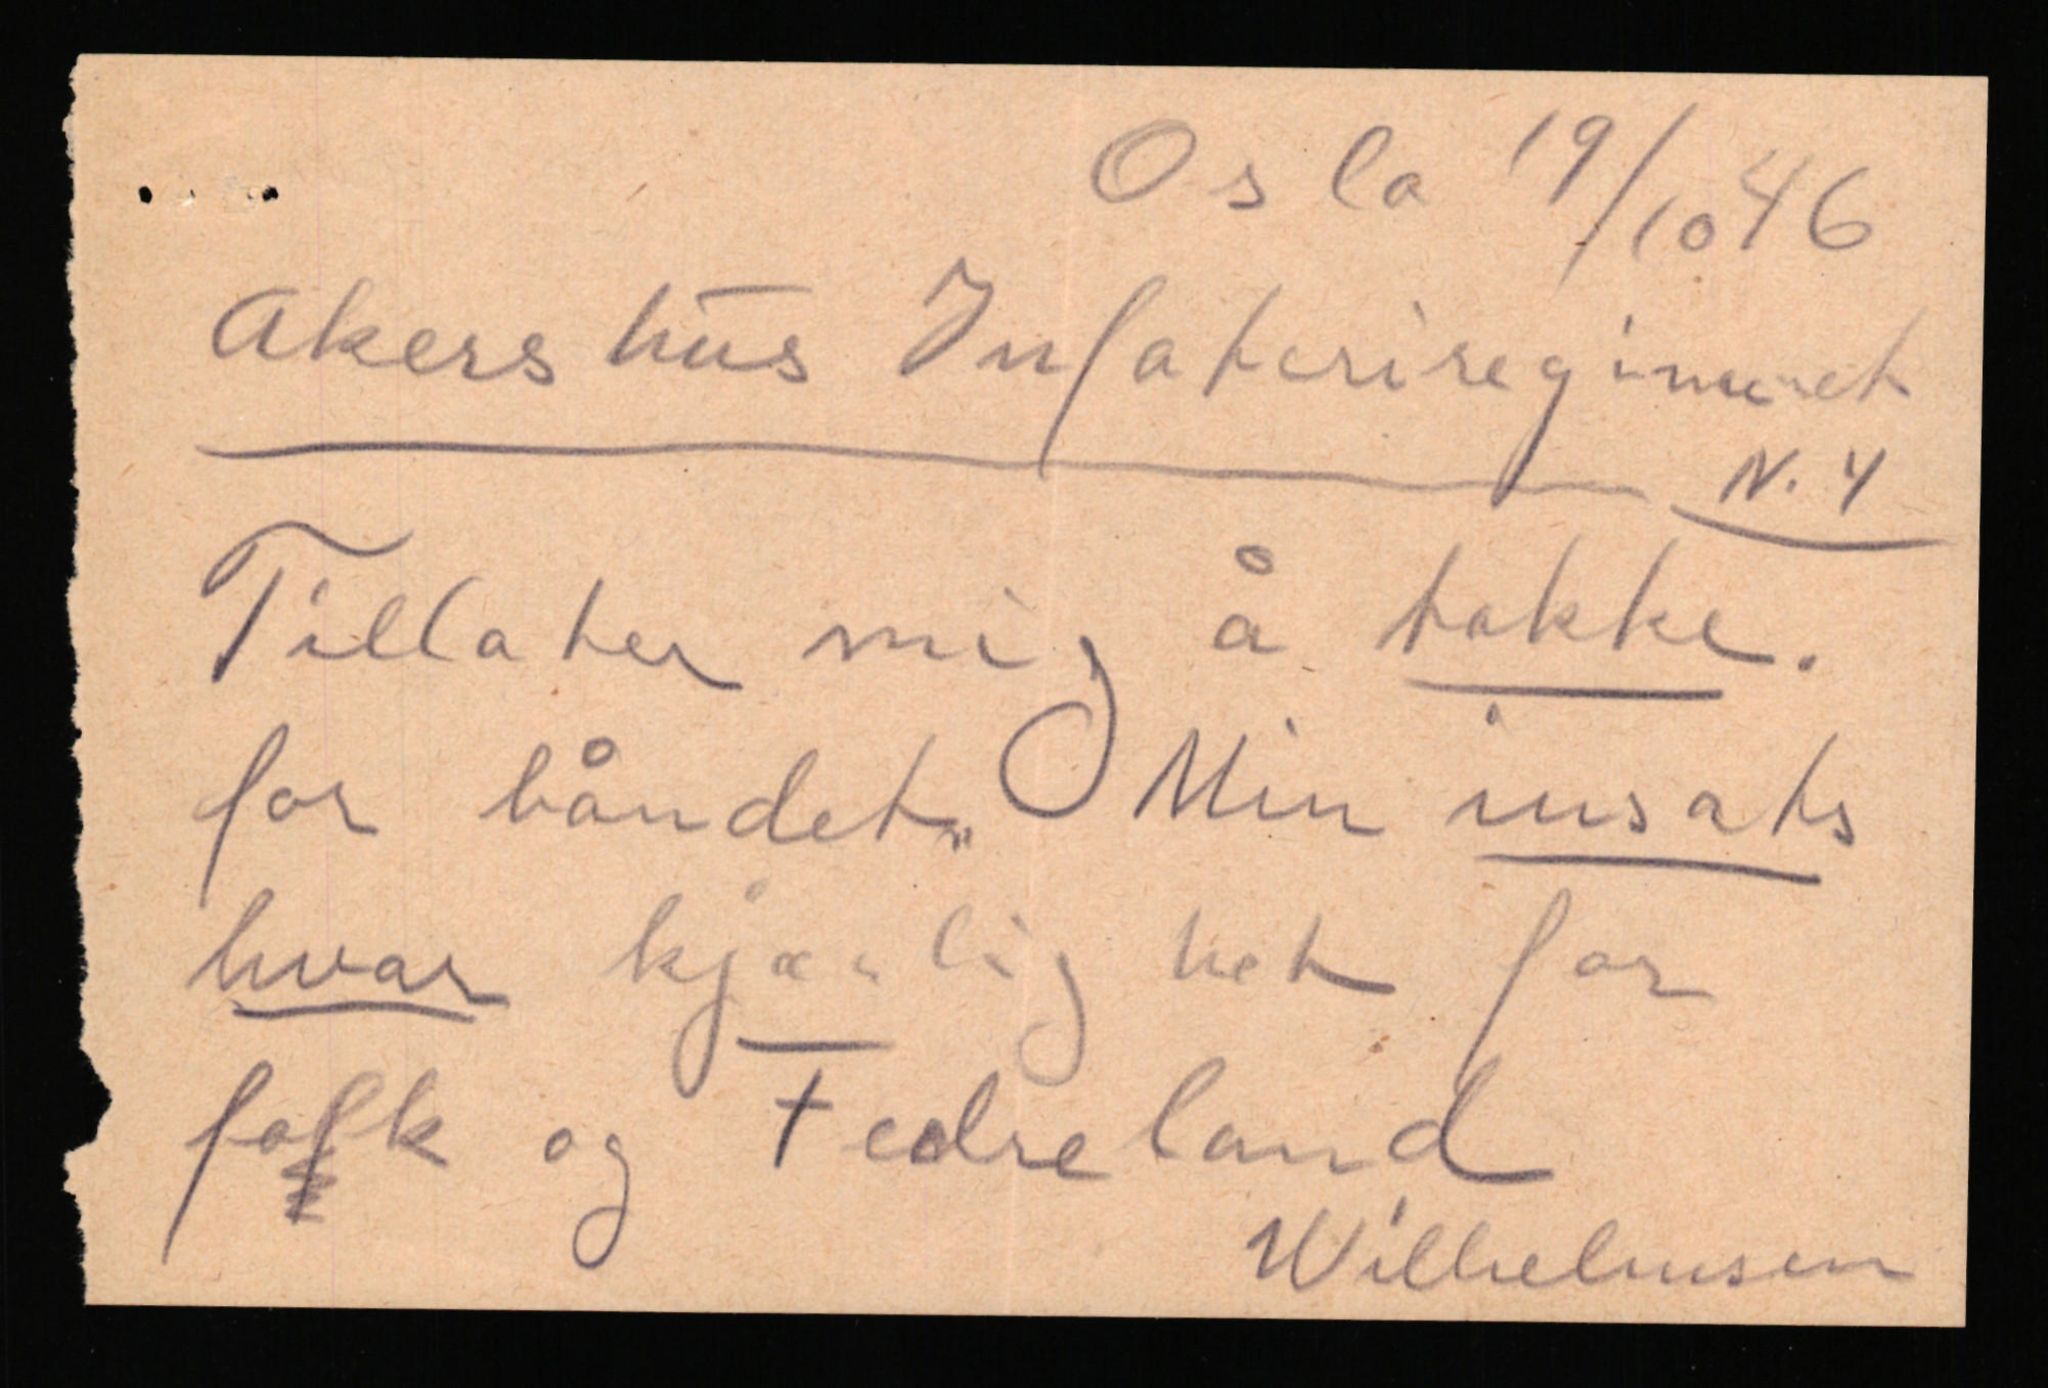 Oslo 19/10 46
Akershus Infateriregimenet
N. 4
Tillater mig å takke.
for båndet. Min insats
hvar kjærlighet for
folk og Fedreland
Wilhelmsen